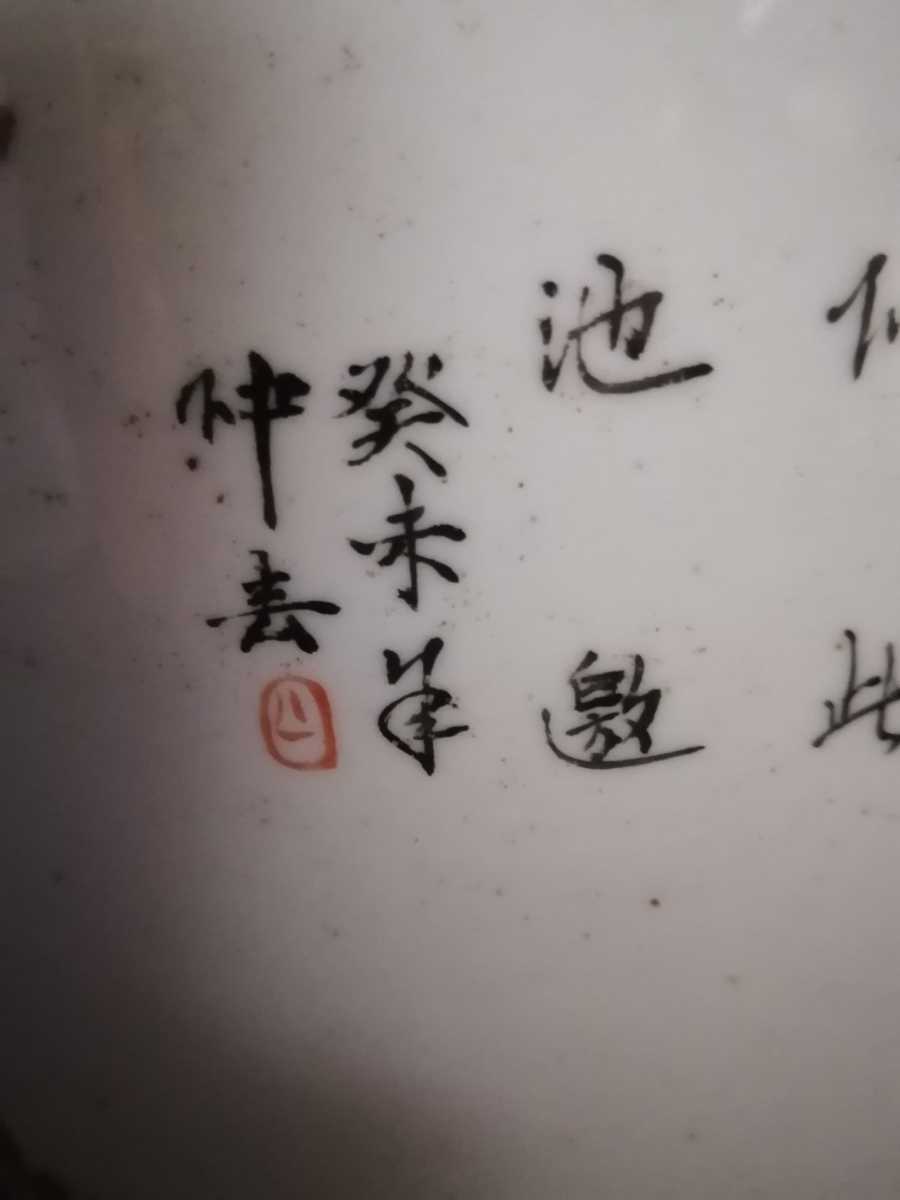 此
池邀
癸未年
仲春